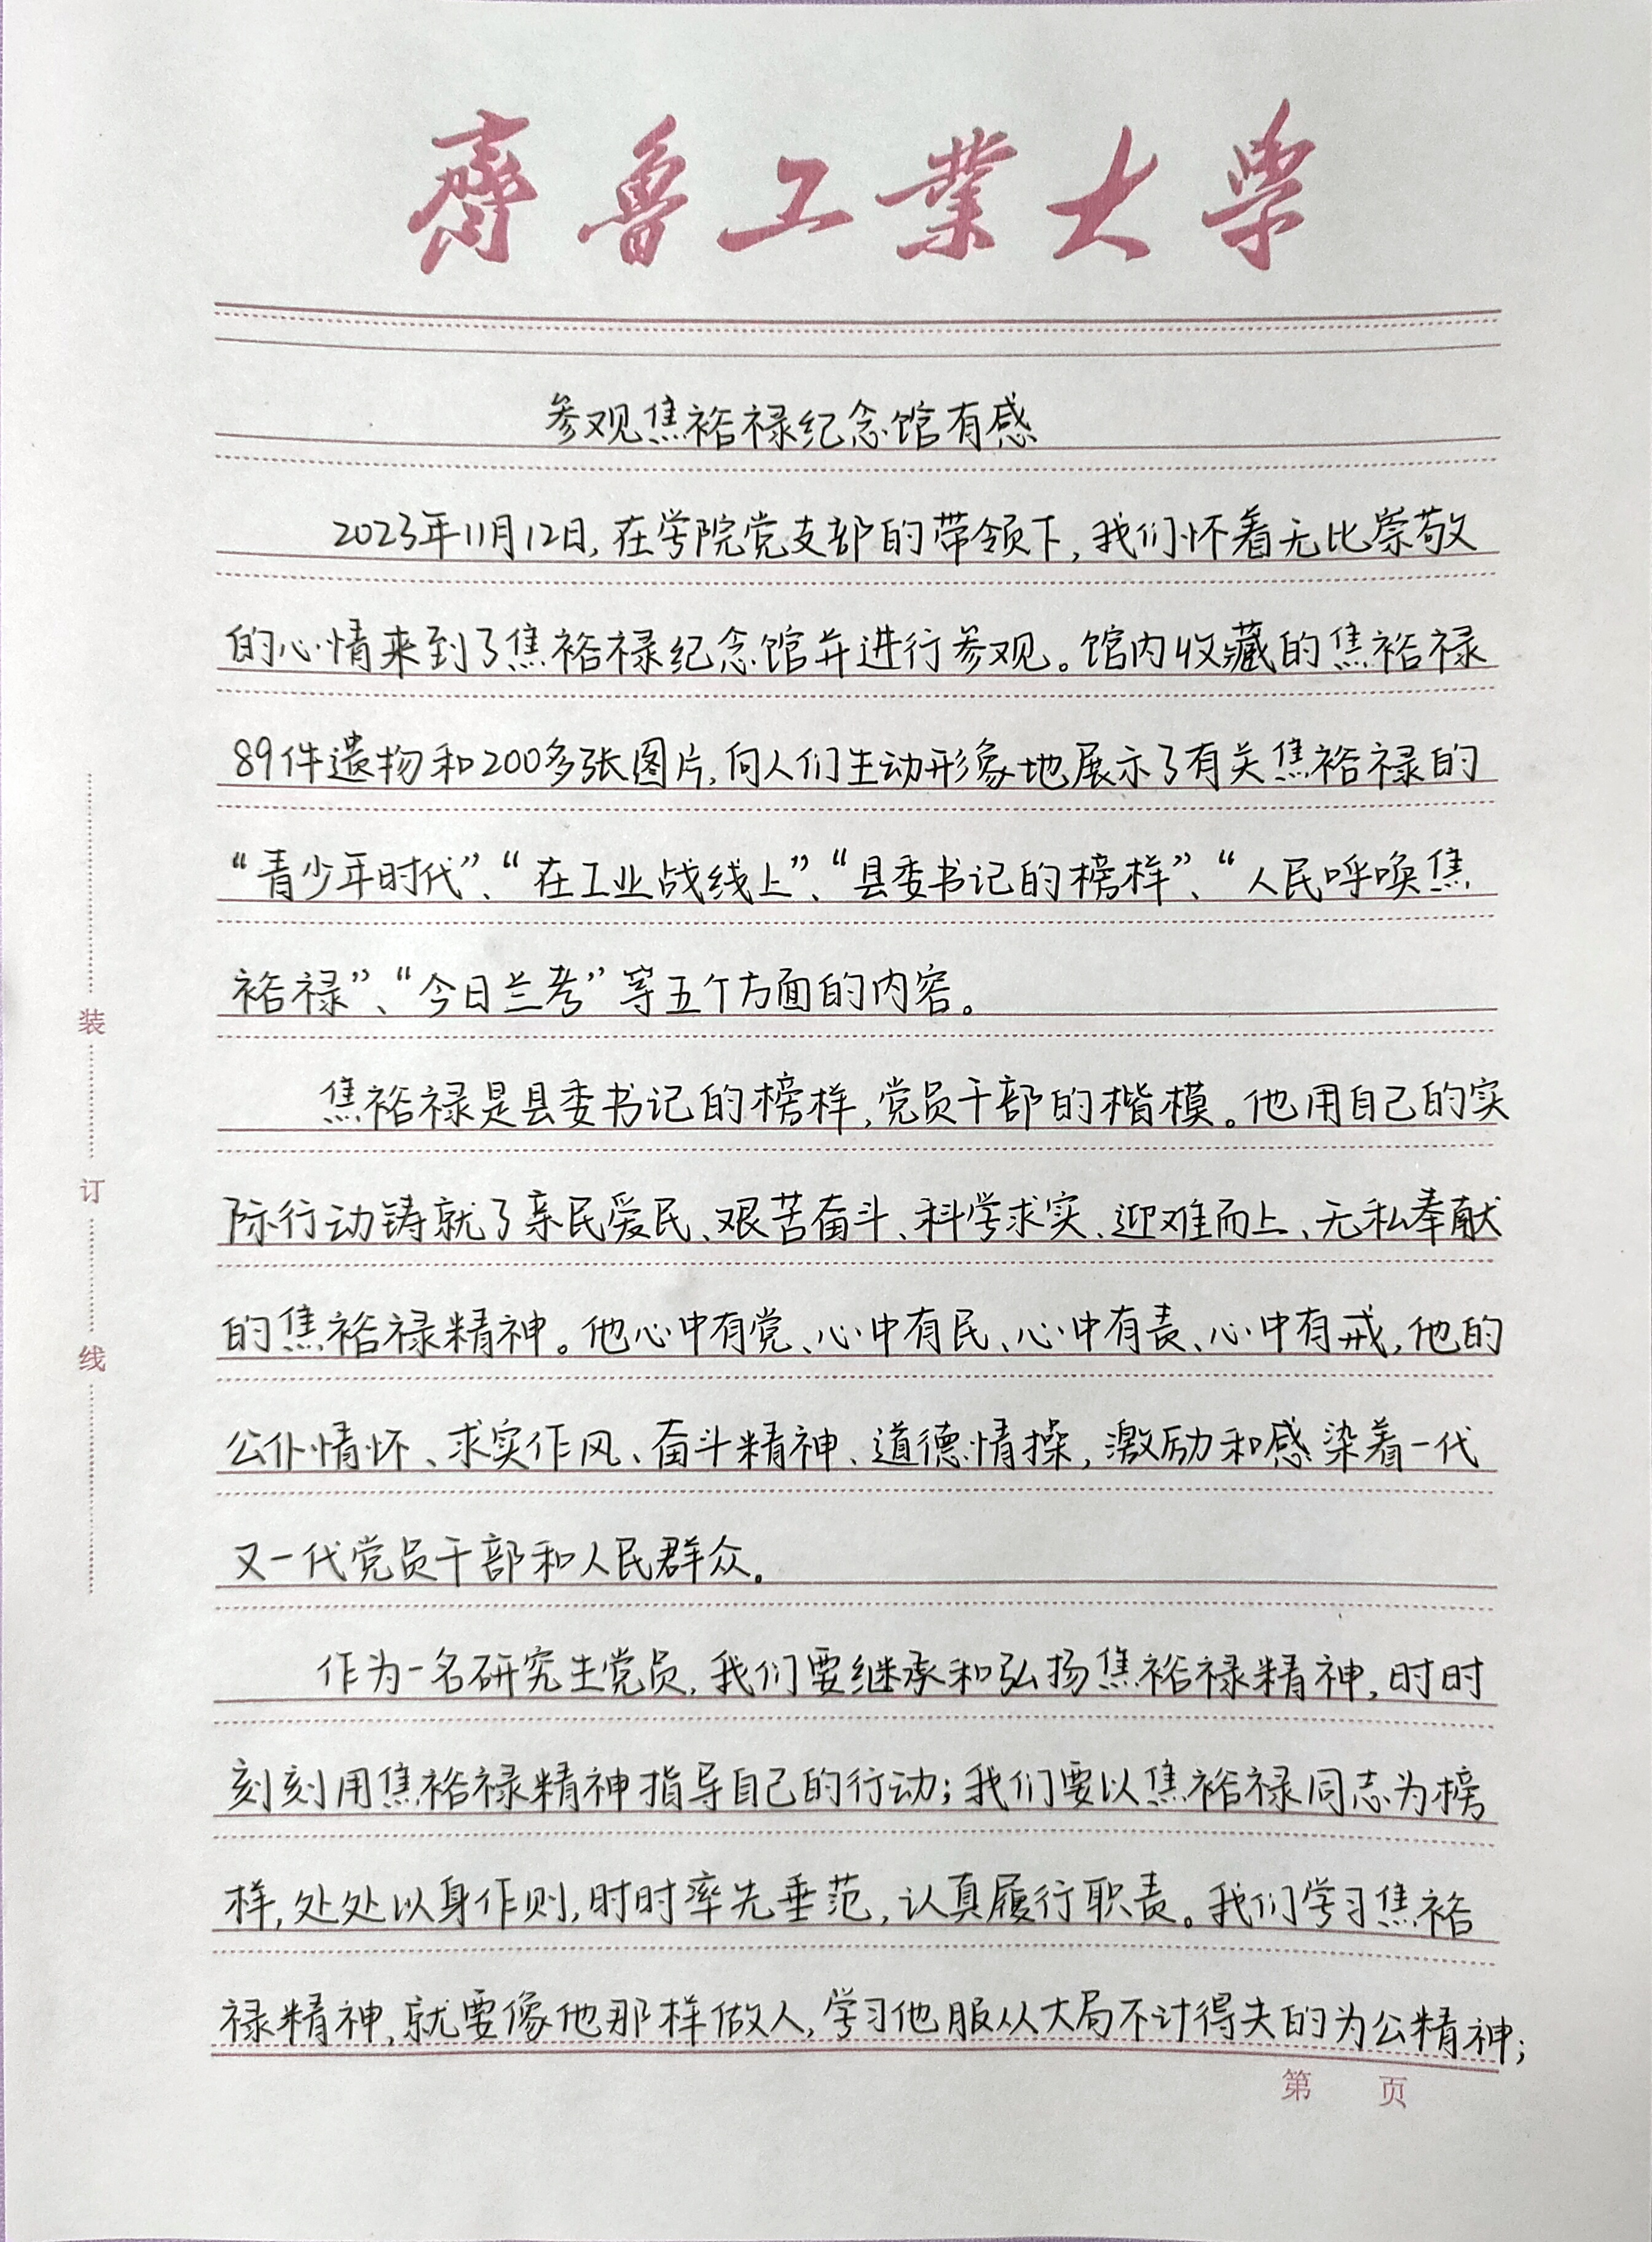 齊魯工業大学
参观焦裕禄纪念馆有感
2023年11月12日,在学院党支部的带领下,我们怀着无比崇敬
的心情来到了焦裕禄纪念馆并进行参观。馆内收藏的焦裕禄
89件遗物和200多张图片,向人们生动形象地展示了有关焦裕禄的
“青少年时代”、“在工业战线上”、“县委书记的榜样”、“人民呼唤焦
裕禄”、“今日兰考”等五个方面的内容。
焦裕禄是县委书记的榜样,党员干部的楷模。他用自己的实
际行动铸就了亲民爱民、艰苦奋斗、科学求实、迎难而上、无私奉献
的焦裕禄精神。他心中有党、心中有民、心中有责、心中有戒,他的
公仆情怀、求实作风、奋斗精神、道德情操,激励和感染着一代
又一代党员干部和人民群众。
作为一名研究生党员,我们要继承和弘扬焦裕禄精神,时时
刻刻用焦裕禄精神指导自己的行动;我们要以焦裕禄同志为榜
样,处处以身作则,时时率先垂范,认真履行职责。我们学习焦裕
禄精神,就要像他那样做人,学习他服从大局不计得失的为公精神;
第 页
装
订
线